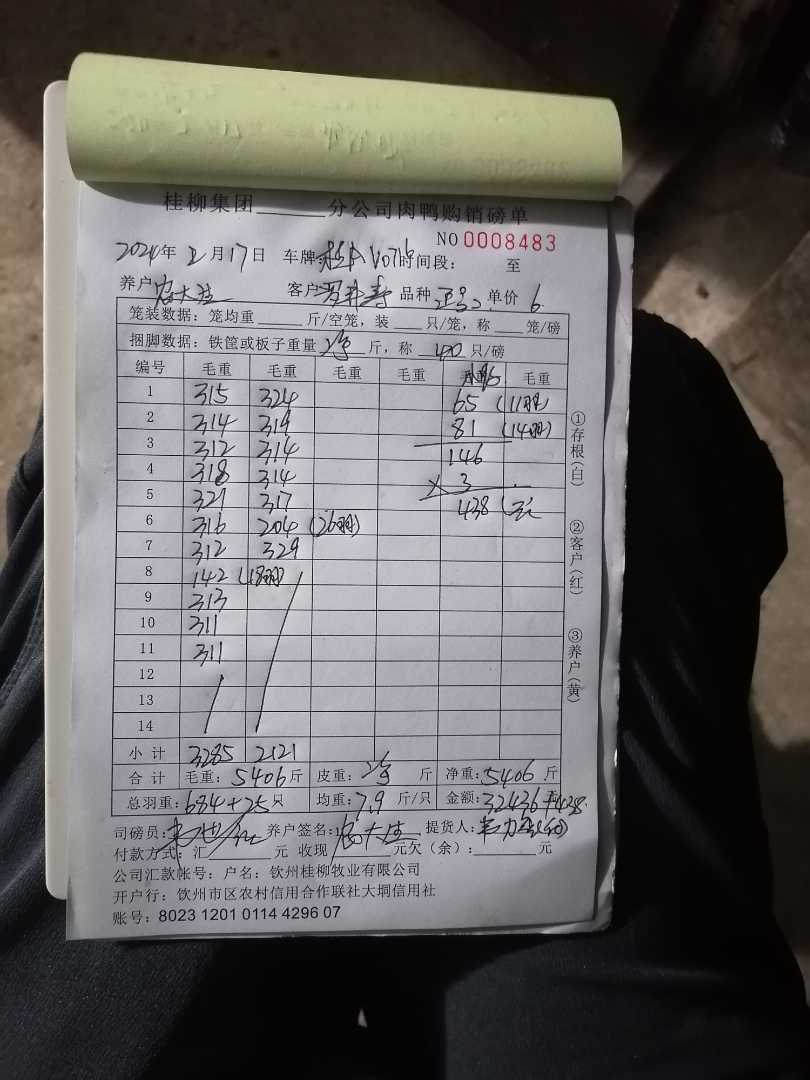 桂柳集团______分公司肉鸭购销磅单
NO 0008483
2024年 2月17日 车牌: V076 时间段: 至
养户 客户 品种 单价 6
笼装数据: 笼均重______斤/空笼, 装____只/笼, 称____笼/磅
捆脚数据: 铁筐或板子重量 斤, 称 40 只/磅
编号 毛重 毛重 毛重 毛重 毛重
1 315 324 65 (11羽)
2 314 319 81 (14羽)
3 312 314 146
4 318 314 × 3
5 321 317 438
6 316 204 (26羽)
7 312 329
8 142 (18羽)
9 313
10 311
11 311
12
13
14
小计 3285 2121
合计 毛重: 5406斤 皮重: 斤 净重: 5406 斤
总羽重: 684+25只 均重: 7.9 斤/只 金额: 32436+438
司磅员: 养户签名: 提货人:
付款方式: 汇________元 收现________元欠(余):________元
公司汇款帐号: 户名: 钦州桂柳牧业有限公司
开户行: 钦州市区农村信用合作联社大垌信用社
账号: 8023 1201 0114 4296 07
①存根(白)
②客户(红)
③养户(黄)